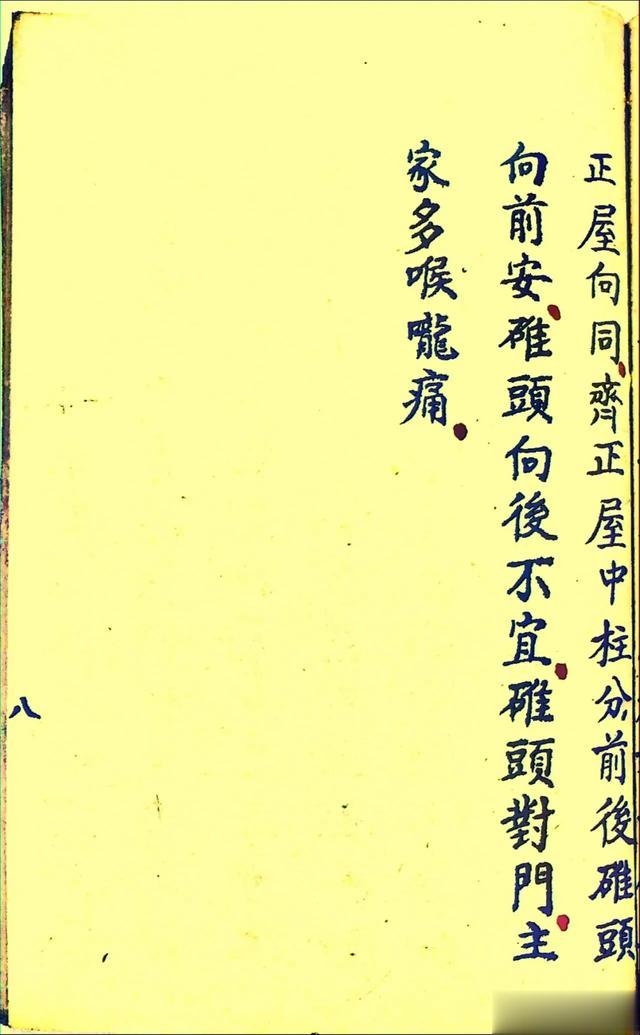 正屋向同齊正屋中柱分前後碓頭
向前安碓頭向後不宜碓頭對門主
家多喉嚨痛
八